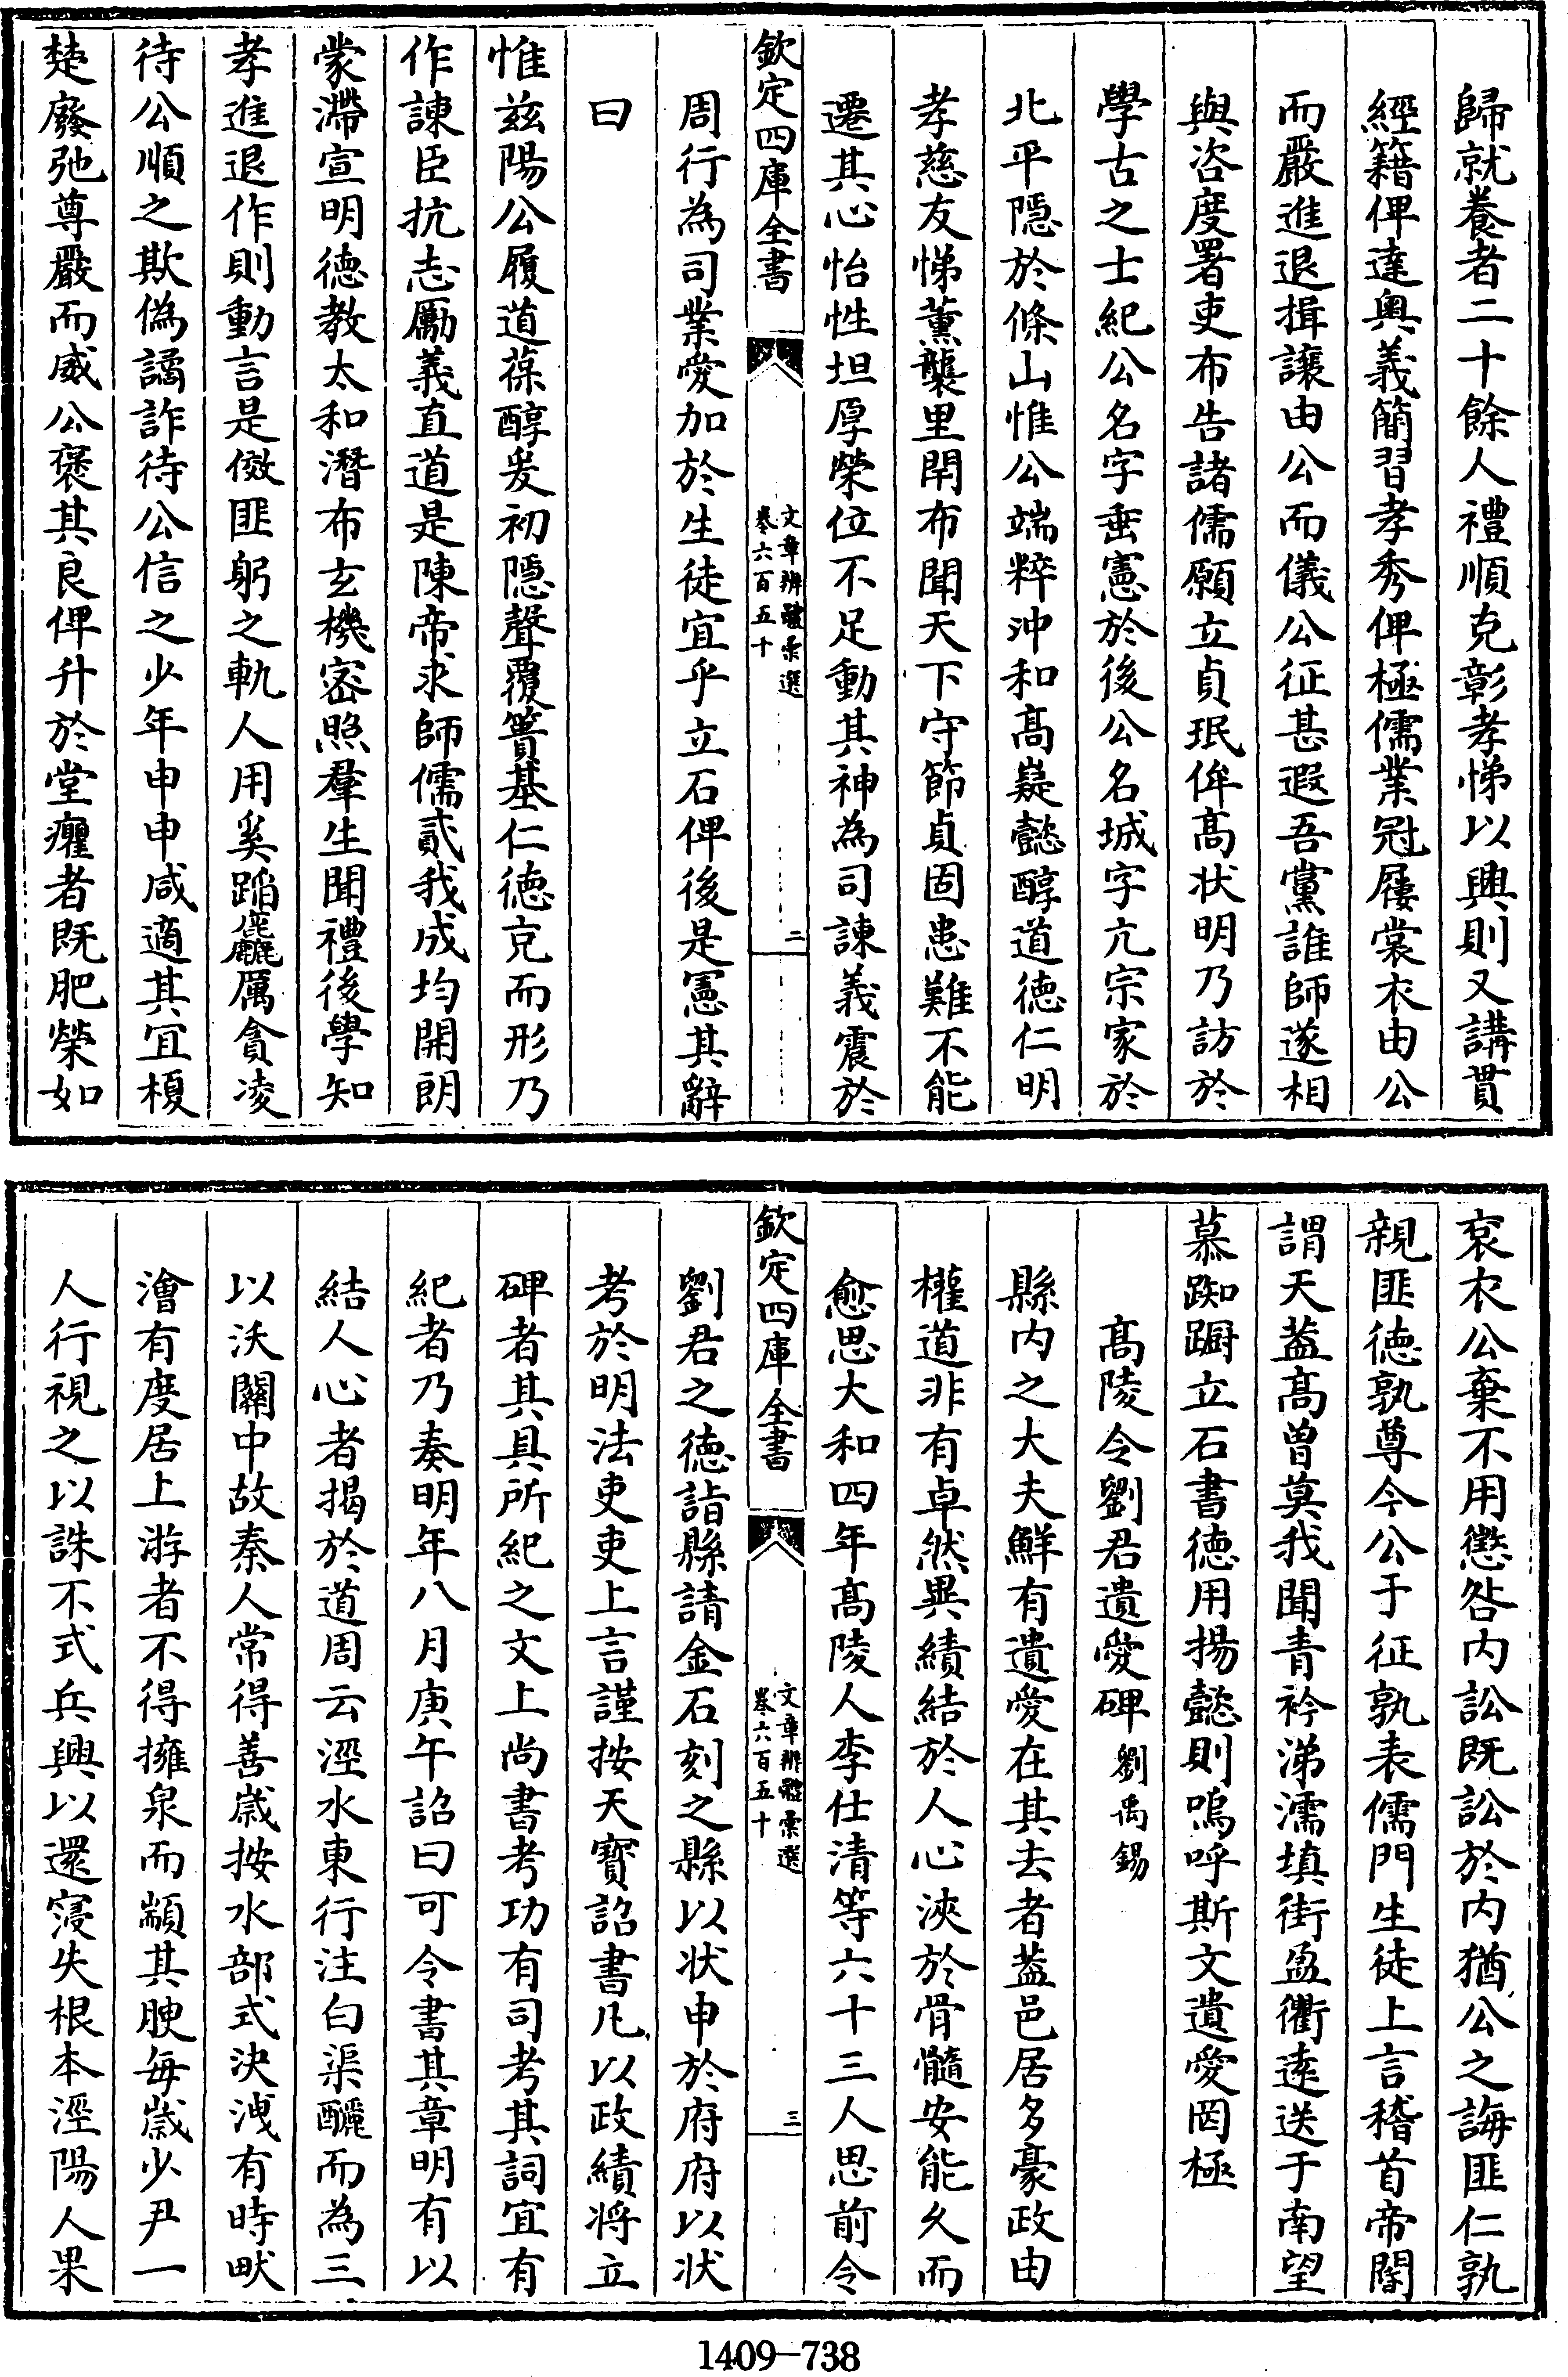 歸就養者二十餘人禮順克彰孝悌以興則又講貫
經籍俾達奥義簡習孝秀俾極儒業冠屨裳衣由公
而嚴進退揖讓由公而儀公征甚遐吾黨誰師遂相
與咨度署吏布告諸儒願立貞珉侔髙状明乃訪於
學古之士紀公名字垂憲於後公名城字亢宗家於
北平隠於條山惟公端粹沖和髙嶷懿醇道徳仁明
孝慈友悌薰襲里閈布聞天下守節貞固患難不能
遷其心怡性坦厚榮位不足動其神為司諌義震於
欽定四庫全書
文章辨體彙選
卷六百五十
二
周行為司業愛加於生徒宜乎立石俾後是憲其辭
曰
惟兹陽公履道葆醇爰初隠聲覆簣基仁徳克而形乃
作諌臣抗志厲義直道是陳帝求師儒貳我成均開朗
蒙滯宣明徳教太和潛布玄機密照羣生聞禮後學知
孝進退作則動言是傚匪躬之軌人用奚蹈麤厲貪凌
待公順之欺偽譎詐待公信之少年申申咸適其宜榎
楚廢弛尊嚴而威公褒其良俾升於堂癯者既肥榮如
衮衣公棄不用懲咎内訟既訟於内猶公之誨匪仁孰
親匪徳孰尊今公于征孰表儒門生徒上言稽首帝閽
謂天葢髙曽莫我聞青衿涕濡填街盈衢逺送于南望
慕踟蹰立石書徳用揚懿則嗚呼斯文遺愛罔極
髙陵令劉君遺愛碑 劉禹錫
縣内之大夫鮮有遺愛在其去者葢邑居多豪政由
權道非有卓然異績結於人心浹於骨髓安能久而
愈思大和四年髙陵人李仕清等六十三人思前令
欽定四庫全書
文章辨體彙選
卷六百五十
三
劉君之徳詣縣請金石刻之縣以状申於府府以状
考於明法吏吏上言謹按天寳詔書凡以政績将立
碑者其具所紀之文上尚書考功有司考其詞宜有
紀者乃奏明年八月庚午詔曰可令書其章明有以
結人心者揭於道周云涇水東行注白渠釃而為三
以沃關中故秦人常得善嵗按水部式決洩有時畎
澮有度居上游者不得擁泉而顓其腴毎嵗少尹一
人行視之以誅不式兵興以還寖失根本涇陽人果
1409—738